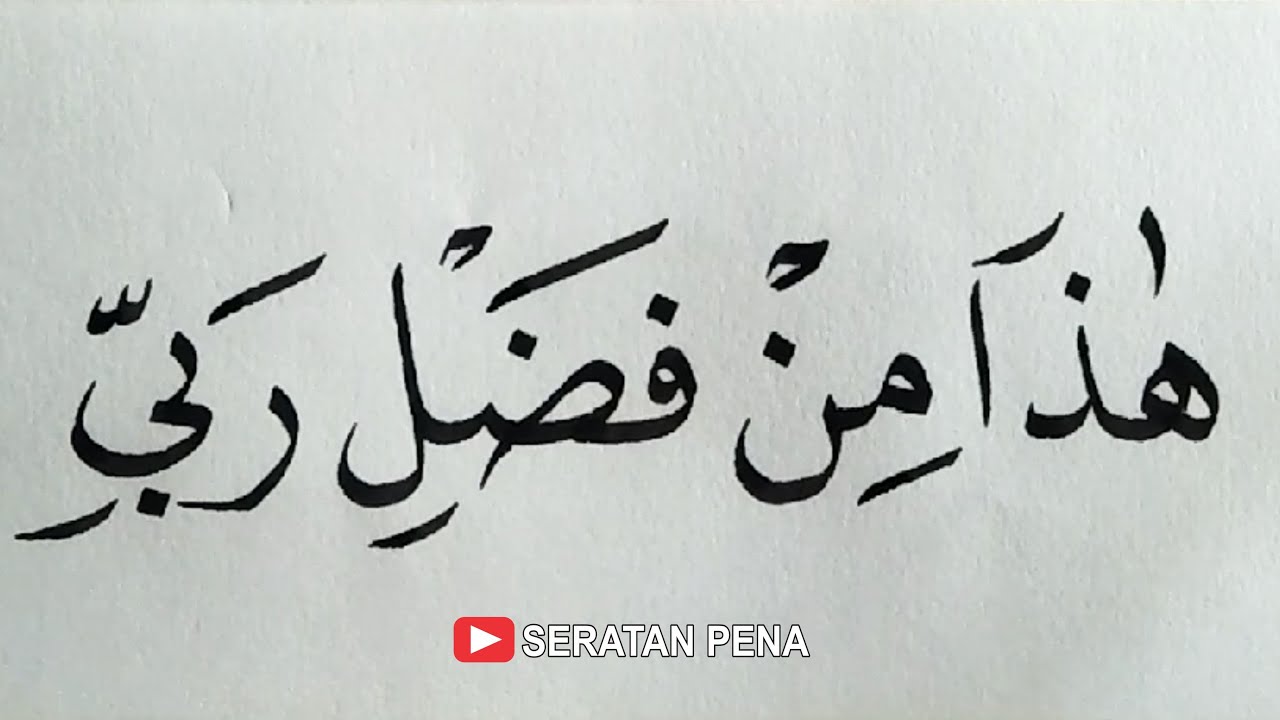 هٰذَا مِنْ فَضْلِ رَبِّي
SERATAN PENA